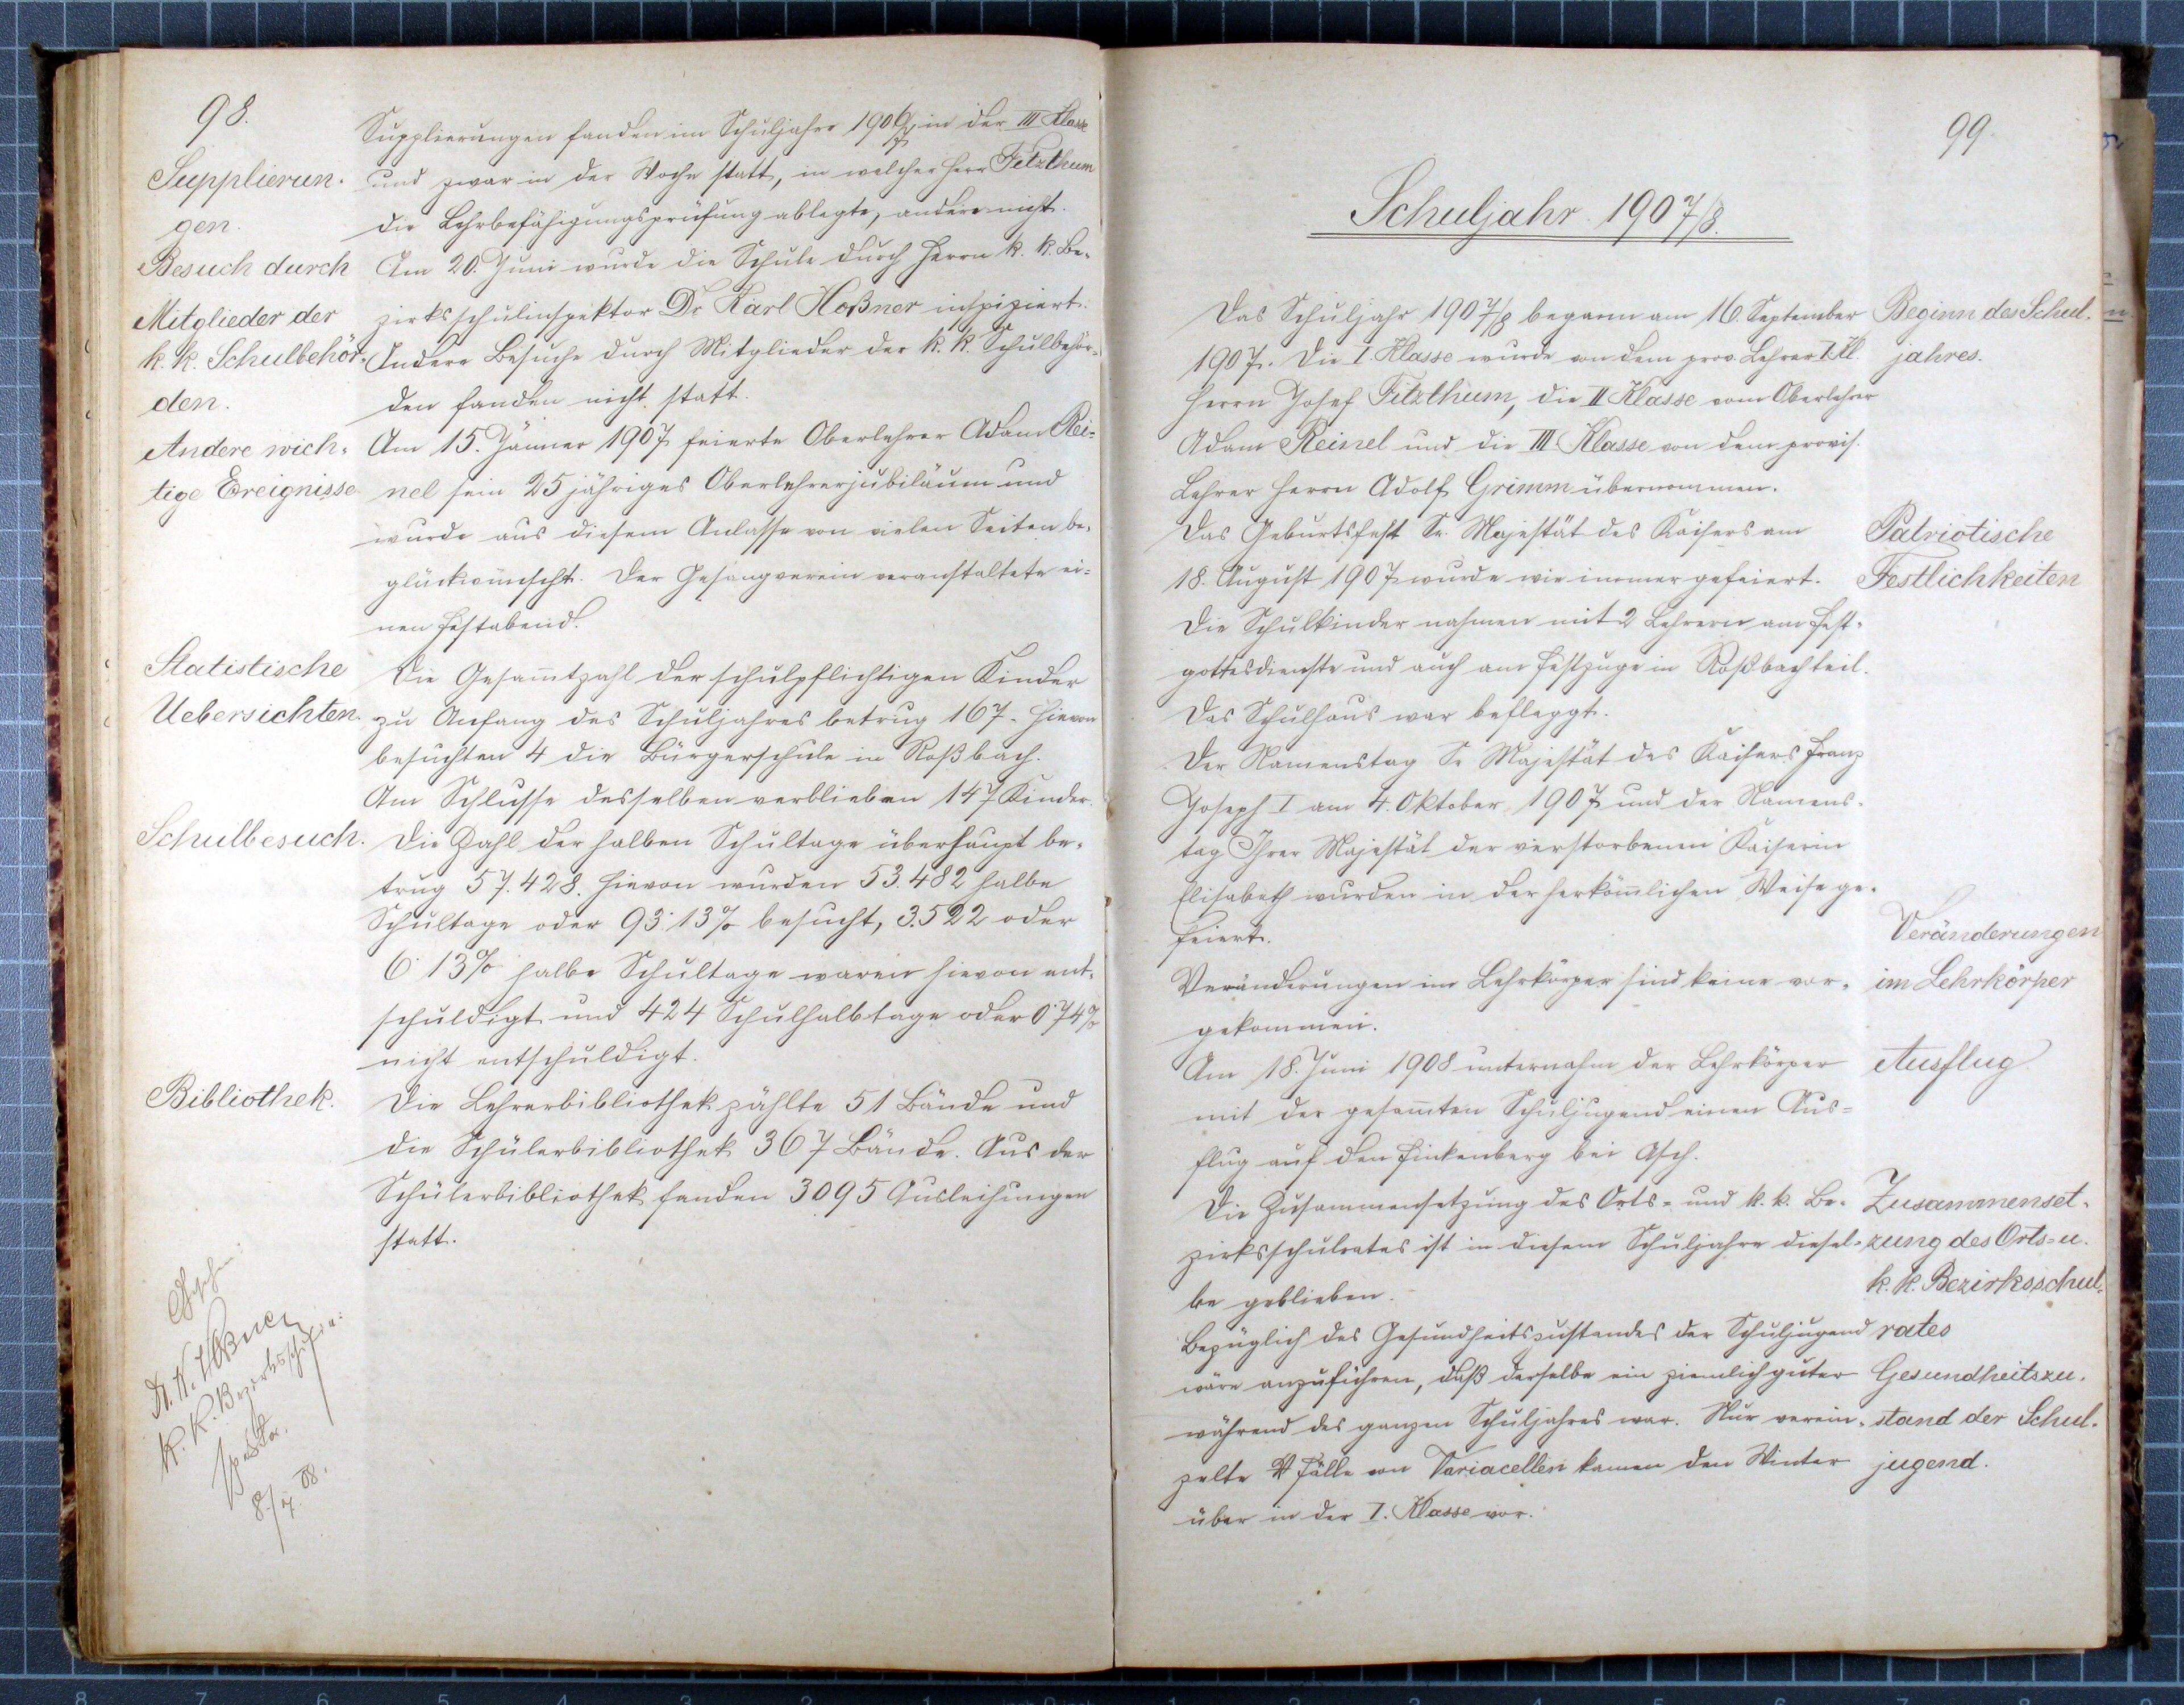 98.
Supplierungen fanden im Schuljahre 1906/7 in der III Klasse
Supplierun-
und zwar in der Woche statt, in welcher Herr Fitzthum
gen.
die Lehrbefähigungsprüfung ablegte, andere nicht.
Besuch durch
Am 20. Juni wurde die Schule durch Herrn k. k. Be-
Mitglieder der
zirksschulinspektor Dr Karl Hoßner inspiziert.
k. k. Schulbehör-
Andere Besuche durch Mitglieder der k. k. Schulbehör-
den.
den fanden nicht statt.
Andere wich-
Am 15. Jänner 1907 feierte Oberlehrer Adam Rei-
tige Ereignisse
nel sein 25 jähriges Oberlehrerjubiläum und
wurde aus diesem Anlasse von vielen Seiten be-
glückwünscht. Der Gesangverein veranstaltete ei-
nen Festabend.
Statistische
Die Gesam̄tzahl der schulpflichtigen Kinder
Uebersichten.
zu Anfang des Schuljahres betrug 167. Hievon
besuchten 4 die Bürgerschule in Roßbach.
Am Schlusse desselben verblieben 147 Kinder.
Schulbesuch.
Die Zahl der halben Schultage überhaupt be-
trug 57.428. Hievon wurden 53.482 halbe
Schultage oder 93·13% besucht, 3.522 oder
6·13% halbe Schultage waren hievon ent-
schuldigt und 424 Schulhalbtage oder 0·74%
nicht entschuldigt.
Bibliothek.
Die Lehrerbibliothek zählte 51 Bände und
die Schülerbibliothek 367 Bände. Aus der
Schülerbibliothek fanden 3095 Ausleihungen
statt.
Gesehen:
Dr. K. Hoßner
k. k. Bezirksschulin-
spektor.
8./7. 08.
99.
Schuljahr 1907/8.
Das Schuljahr 1907/8 begann am 16. September
Beginn des Schul-
1907. Die I Klasse wurde von dem prov. Lehrer I. Kl.
jahres.
Herrn Josef Fitzthum, die II Klasse vom Oberlehrer
Adam Reinel und die III Klasse von dem provis.
Lehrer Herrn Adolf Grimm übernommen.
Das Geburtsfest Sr. Majestät des Kaisers am
Patriotische
18. August 1907 wurde wie immer gefeiert.
Festlichkeiten
Die Schulkinder nahmen mit 2 Lehrern am Fest-
gottesdienste und auch am Festzuge in Roßbach teil.
Das Schulhaus war beflaggt.
Der Namenstag Sr Majestät des Kaisers Franz
Joseph I am 4. Oktober 1907 und der Namens-
tag Ihrer Majestät der verstorbenen Kaiserin
Elisabeth wurden in der herköm̄lichen Weise ge-
feiert.
Veränderungen
Veränderungen im Lehrkörper sind keine vor-
im Lehrkörper
gekommen.
Am 18. Juni 1908 unternahm der Lehrkörper
Ausflug
mit der gesam̄ten Schuljugend einen Aus-
flug auf den Finkenberg bei Asch.
Die Zusammensetzung des Orts- und k. k. Be-
Zusammenset-
zirksschulrates ist in diesem Schuljahre diesel-
zung des Orts- u.
be geblieben.
k. k. Bezirksschul-
Bezüglich des Gesundheitszustandes der Schuljugend
rates
wäre anzuführen, daß derselbe ein ziemlich guter
Gesundheitszu-
während des ganzen Schuljahres war. Nur verein-
stand der Schul-
zelte Fälle von Variacellen kamen den Winter
jugend.
über in der I. Klasse vor.